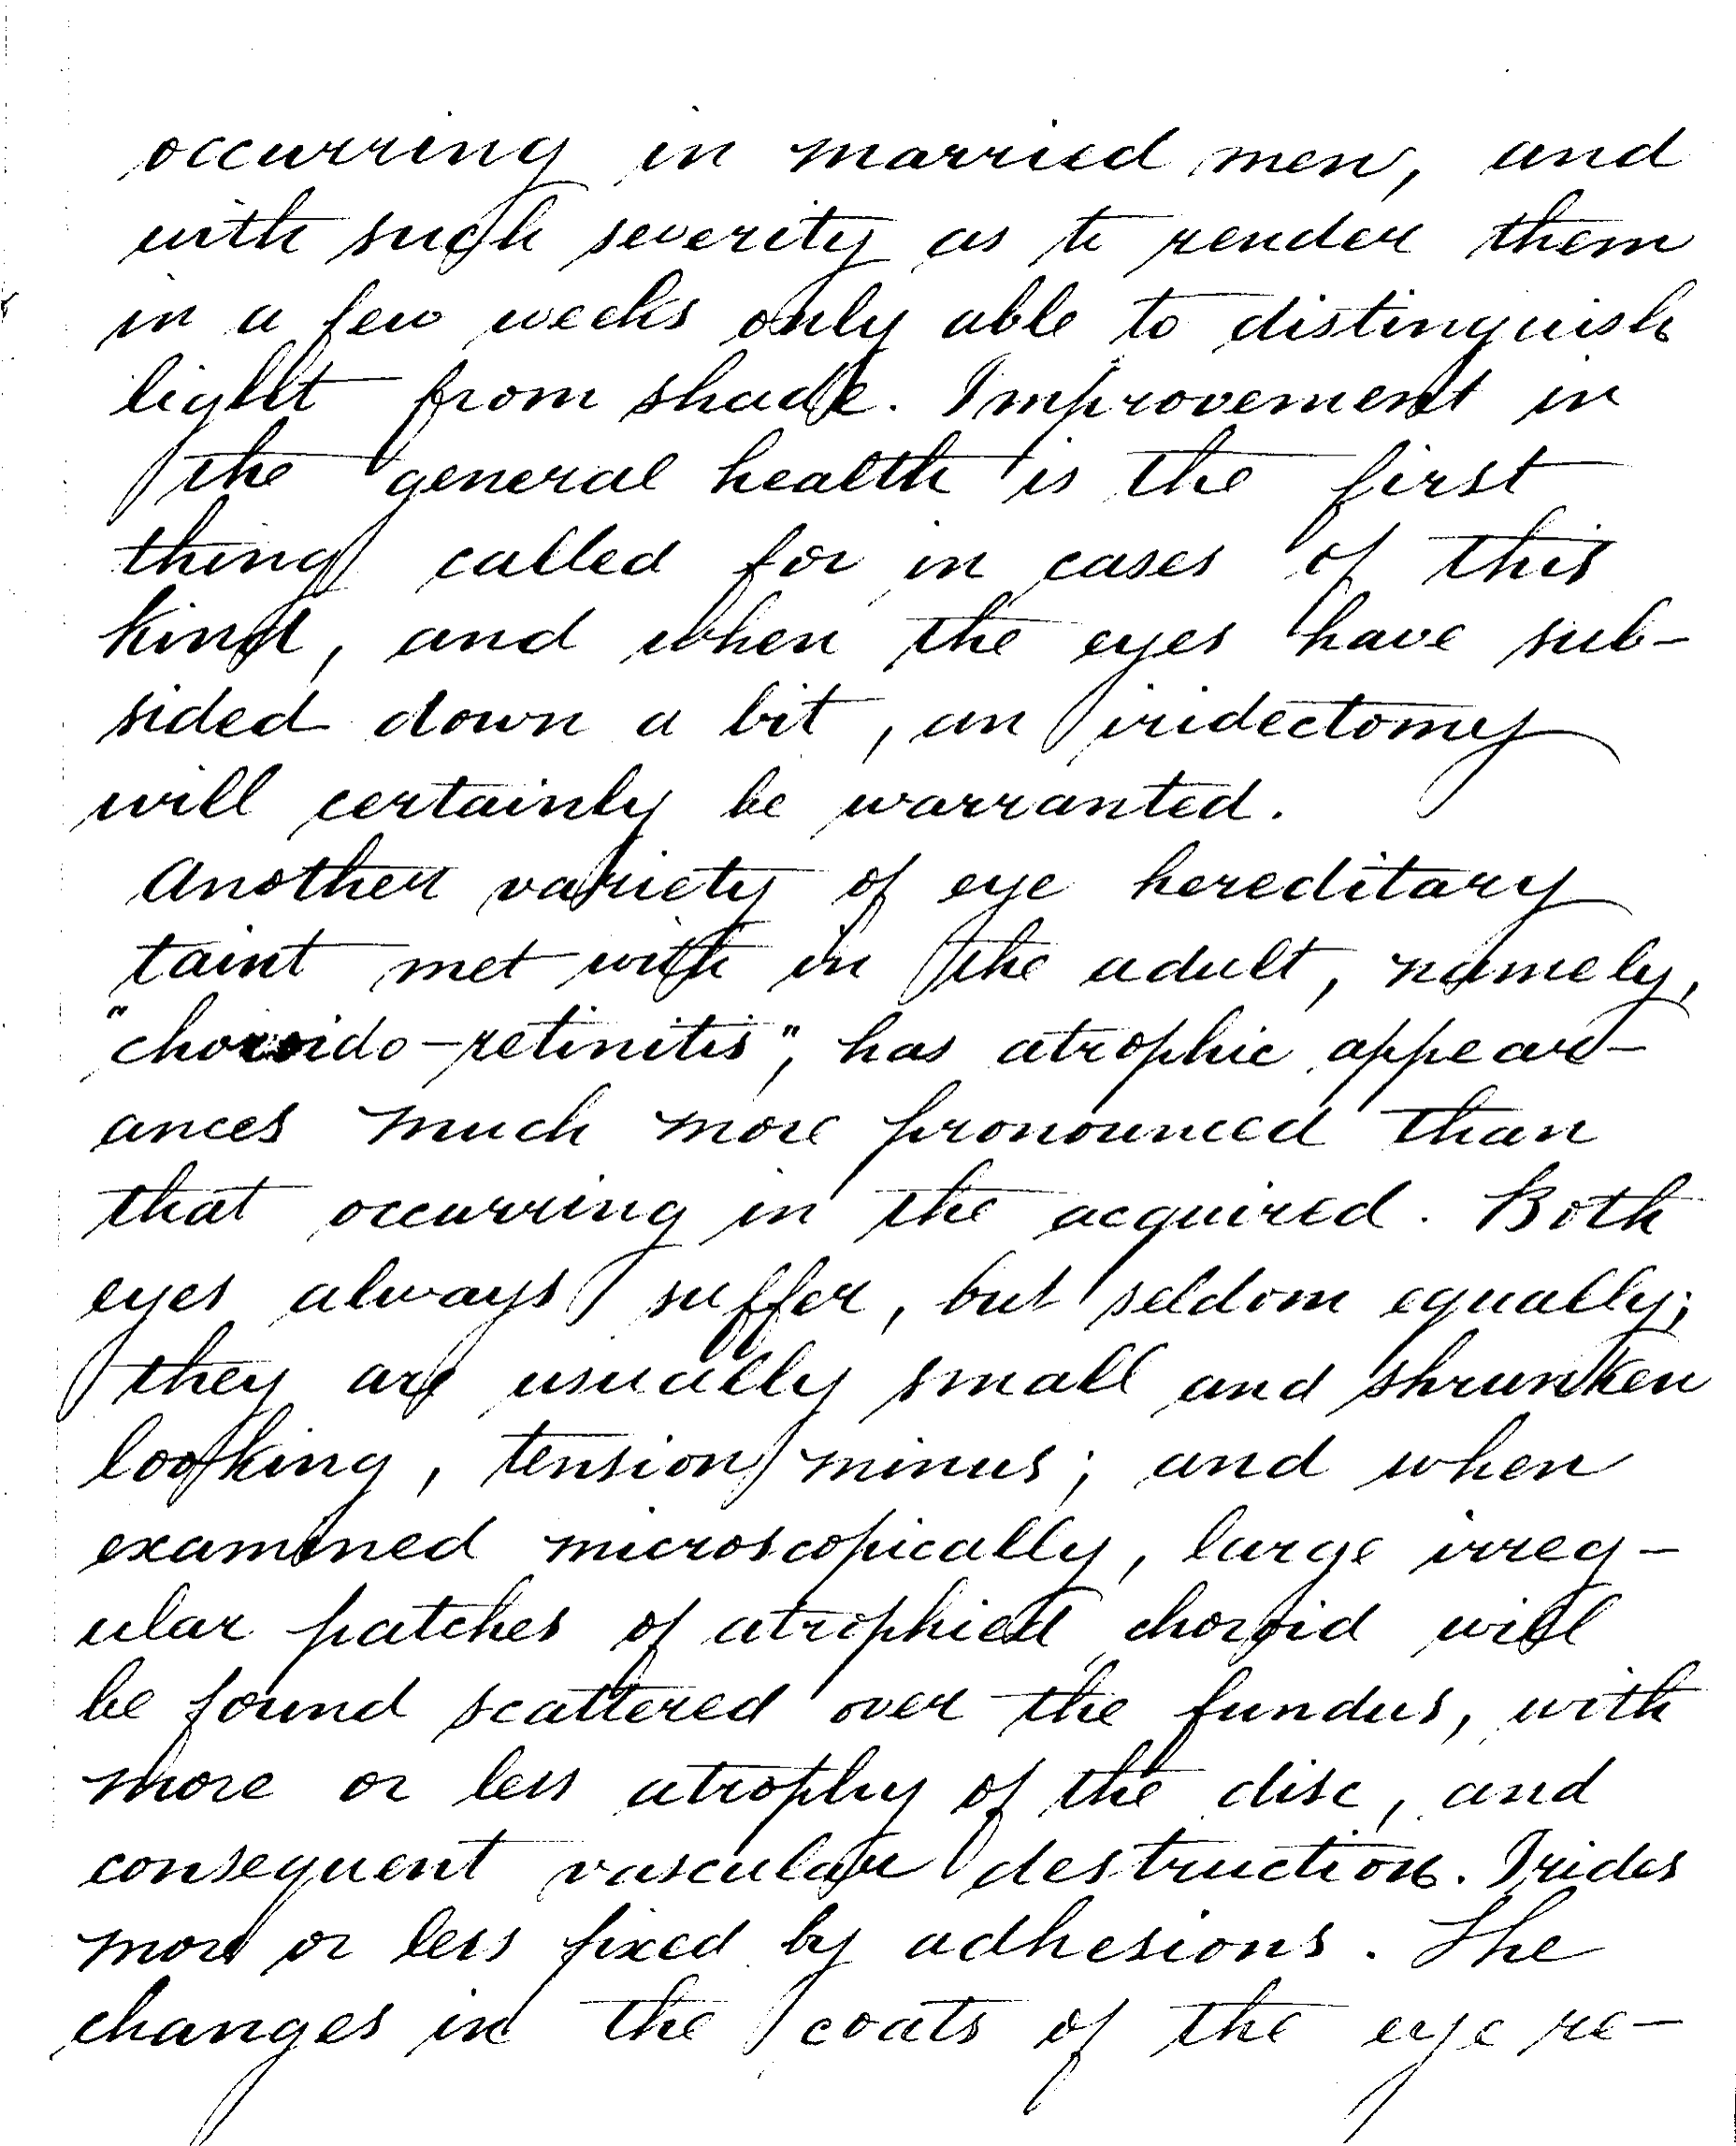 occurring in married men, and
with such severity as to render them
in a few weeks only able to distinguish
light from shade. Improvement in
the general health is the first
thing called for in cases of this
kind, and when the eyes have sub-
sided down a bit, an iridectomy
will certainly be warranted.
Another variety of eye hereditary
taint met with in the adult, namely,
"choroido-retinitis", has atrophic appear-
ances much more pronounced than
that occurring in the acquired. Both
eyes always suffer, but seldom equally;
they are usually small and shrunken
looking, tension minus; and when
examined microscopically, large irreg-
ular patches of atrophied choroid will
be found scattered over the fundus, with
more or less atrophy of the disc, and
consequent vascular destruction. Irides
more or less fixed by adhesions. The
changes in the coats of the eye re-